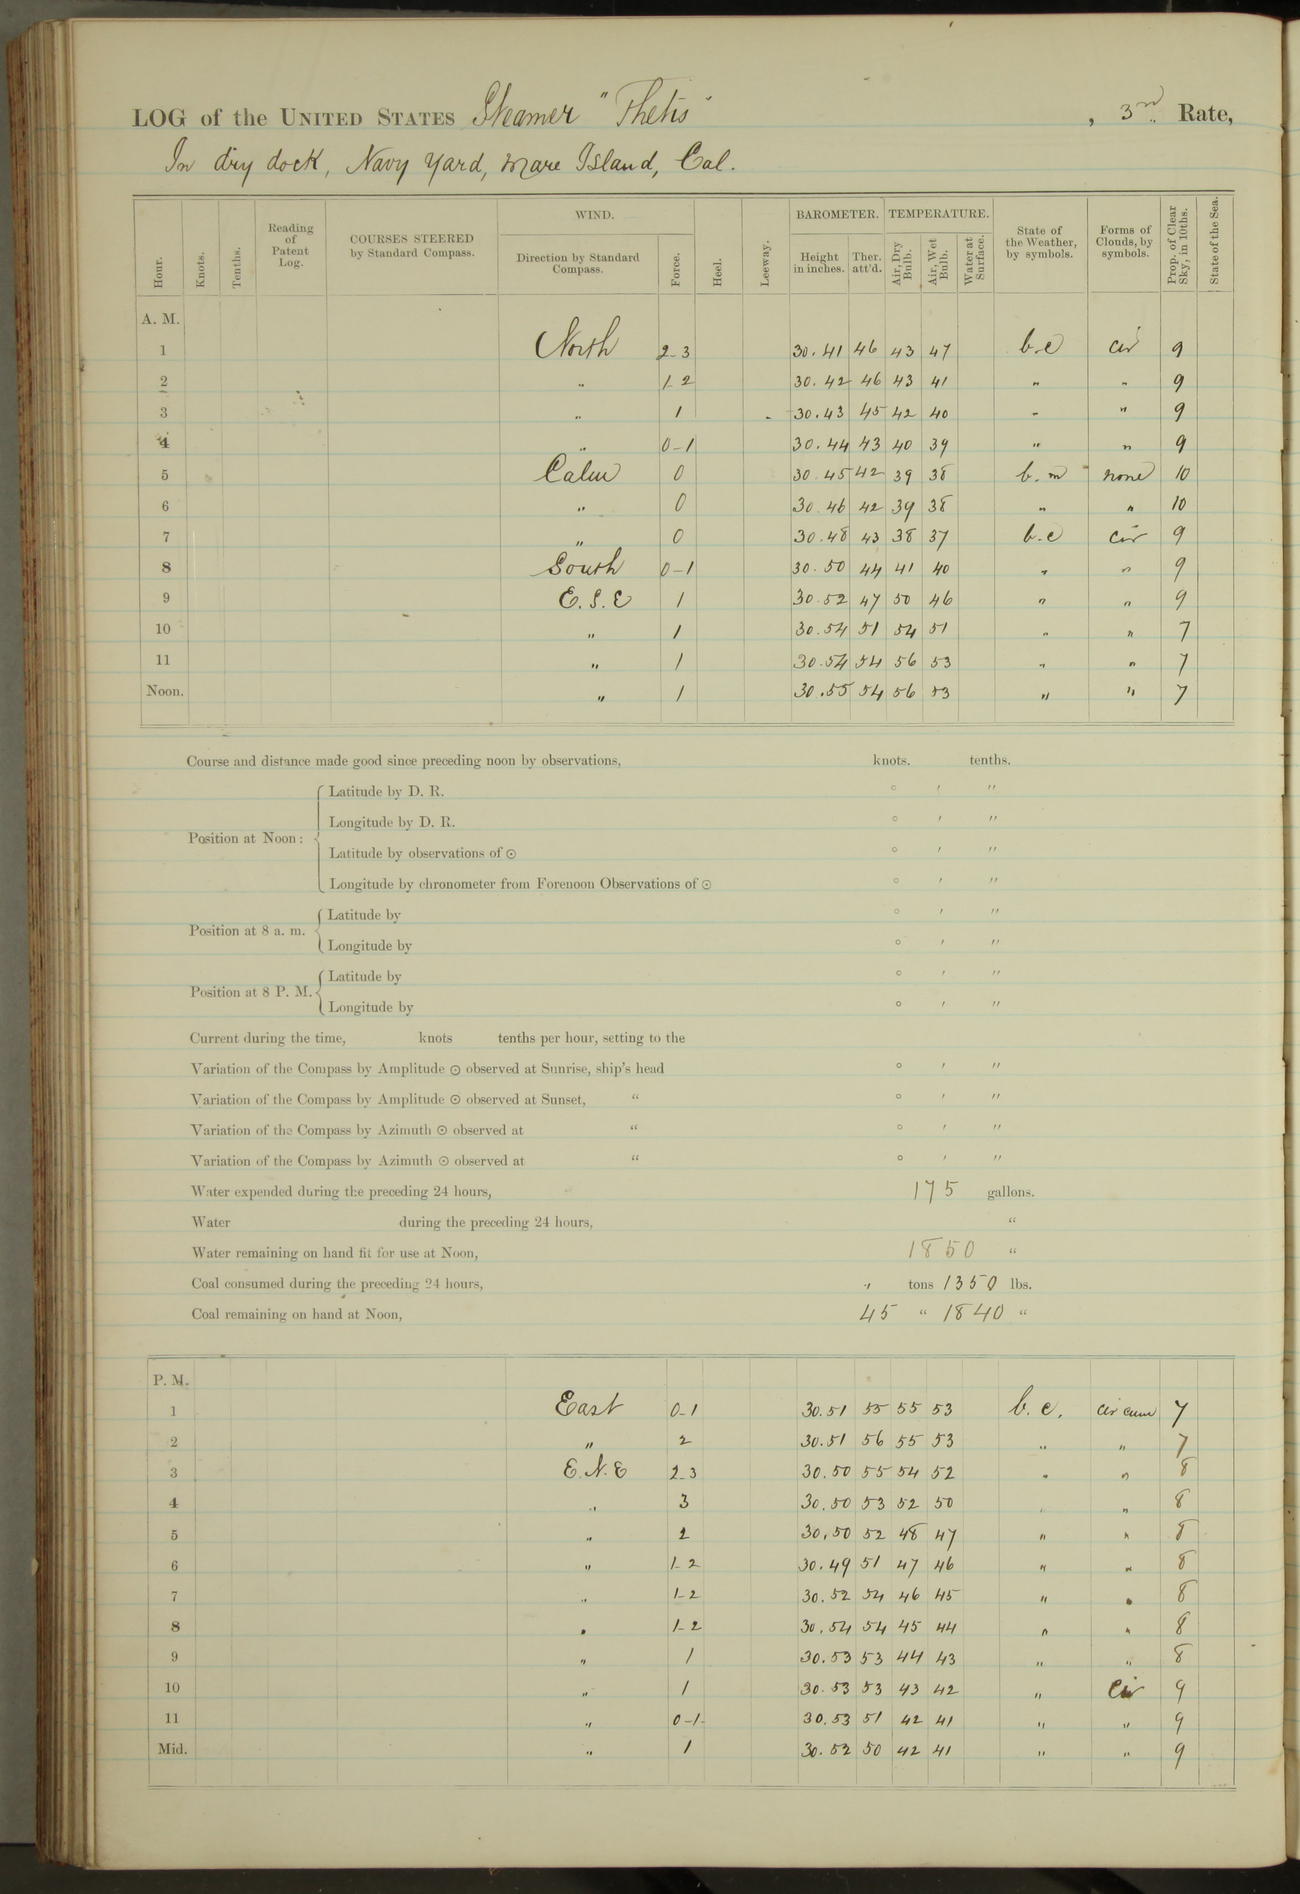 LOG of the UNITED STATES Steamer "Thetis", 3rd Rate,
In dry dock, Navy Yard, Mare Island, Cal.
Hour. Knots. Tenths. Reading of Patent Log. COURSES STEERED by Standard Compass. WIND. Direction by Standard Compass. Force. Heel. Leeway. BAROMETER. Height in inches. Ther. att'd. TEMPERATURE. Air, Dry Bulb. Air, Wet Bulb. Water at Surface. State of the Weather, by symbols. Forms of Clouds, by symbols. Prop. of Clear Sky, in 10ths. State of the Sea.
A. M.
1 North 2-3 30.41 46 43 47 b.c cir 9
2 " 1-2 30.42 46 43 41 " " 9
3 " 1 30.43 45 42 40 " " 9
4 " 0-1 30.44 43 40 39 " " 9
5 Calm 0 30.45 42 39 38 b.m none 10
6 " 0 30.46 42 39 38 " " 10
7 " 0 30.48 43 38 37 b.c cir 9
8 South 0-1 30.50 44 41 40 " " 9
9 E.S.E 1 30.52 47 50 46 " " 9
10 " 1 30.54 51 54 51 " " 7
11 " 1 30.54 54 56 53 " " 7
Noon. " 1 30.55 54 56 53 " " 7
Course and distance made good since preceding noon by observations, knots. tenths.
Position at Noon:
Latitude by D. R. ° ′ ″
Longitude by D. R. ° ′ ″
Latitude by observations of ☉ ° ′ ″
Longitude by chronometer from Forenoon Observations of ☉ ° ′ ″
Position at 8 a. m.
Latitude by ° ′ ″
Longitude by ° ′ ″
Position at 8 P. M.
Latitude by ° ′ ″
Longitude by ° ′ ″
Current during the time, knots tenths per hour, setting to the
Variation of the Compass by Amplitude ☉ observed at Sunrise, ship's head ° ′ ″
Variation of the Compass by Amplitude ☉ observed at Sunset, " ° ′ ″
Variation of the Compass by Azimuth ☉ observed at " ° ′ ″
Variation of the Compass by Azimuth ☉ observed at " ° ′ ″
Water expended during the preceding 24 hours, 175 gallons.
Water during the preceding 24 hours, "
Water remaining on hand fit for use at Noon, 1850 "
Coal consumed during the preceding 24 hours, " tons 1350 lbs.
Coal remaining on hand at Noon, 45 " 1840 "
P. M.
1 East 0-1 30.51 55 55 53 b.c. cir cum 7
2 " 2 30.51 56 55 53 " " 7
3 E.N.E 2-3 30.50 55 54 52 " " 8
4 " 3 30.50 53 52 50 " " 8
5 " 2 30.50 52 48 47 " " 8
6 " 1-2 30.49 51 47 46 " " 8
7 " 1-2 30.52 54 46 45 " " 8
8 " 1-2 30.54 54 45 44 " " 8
9 " 1 30.53 53 44 43 " " 8
10 " 1 30.53 53 43 42 " Cir 9
11 " 0-1 30.53 51 42 41 " " 9
Mid. " 1 30.52 50 42 41 " " 9